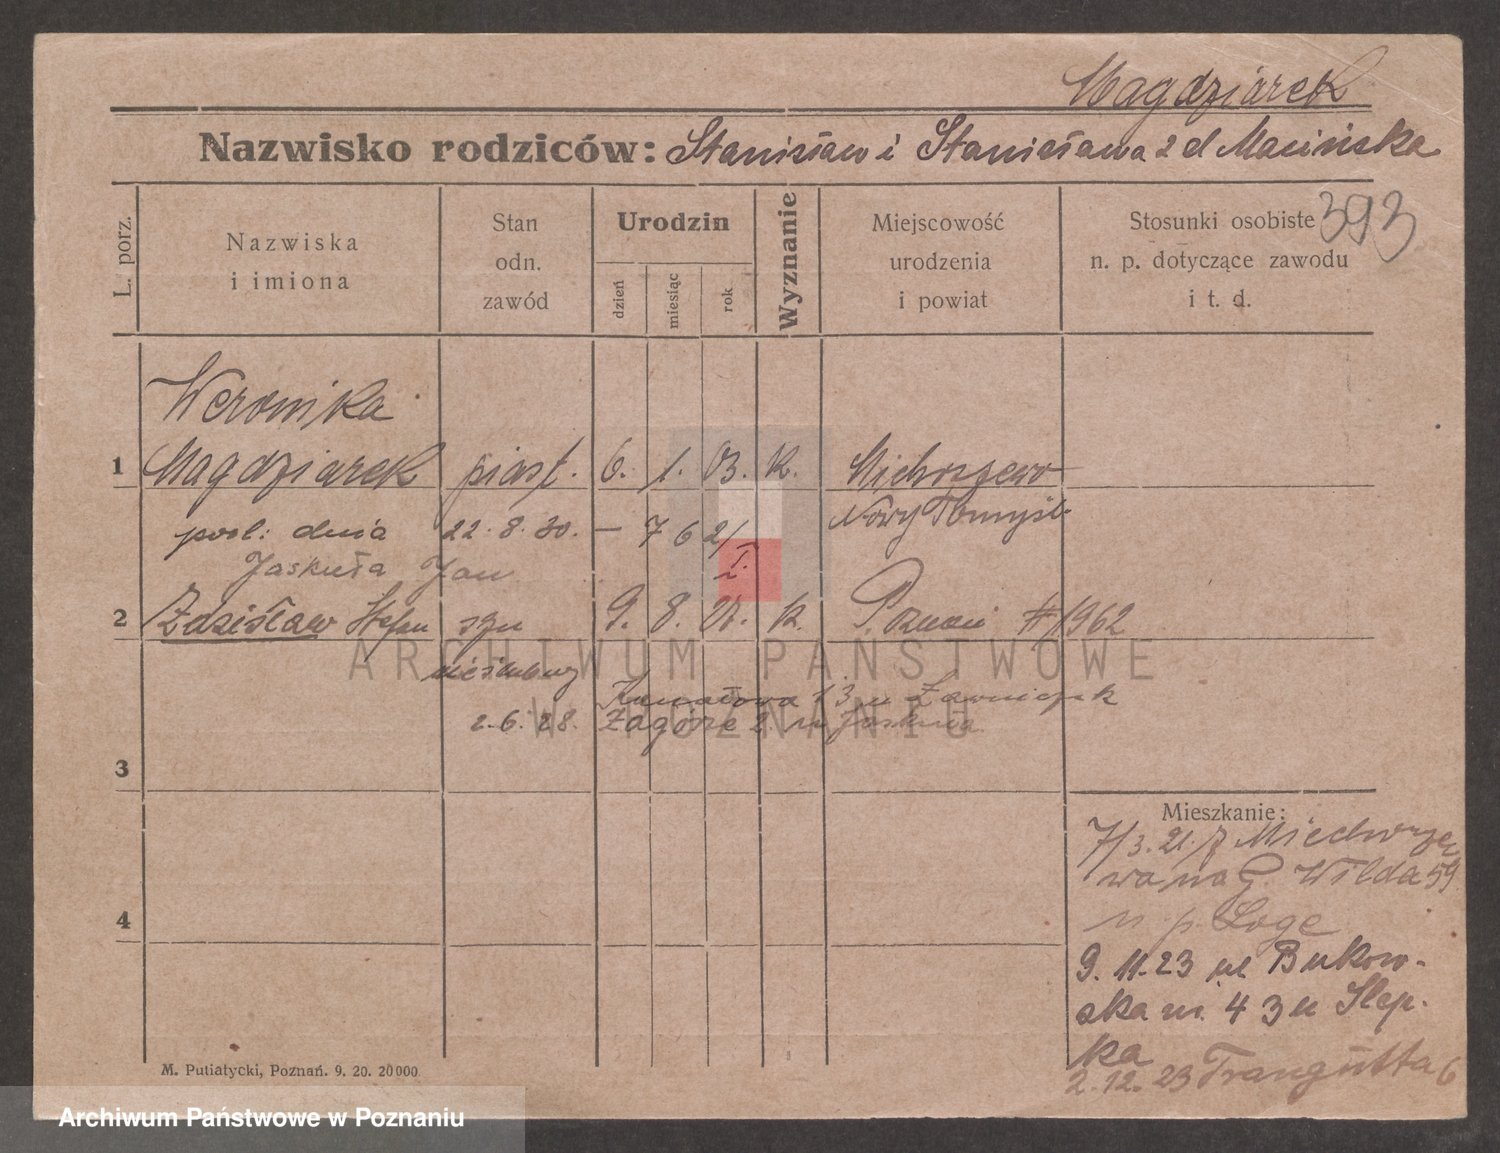 Magdziarek
Nazwisko rodziców: Stanisław i Stanisława z d Macińska
393
L. porz.
Nazwiska
i imiona
Stan
odn.
zawód
Urodzin
dzień
miesiąc
rok
Wyznanie
Miejscowość
urodzenia
i powiat
Stosunki osobiste
n. p. dotyczące zawodu
i t. d.
Weronika
1 Magdziarek piast. 6. 1. 03. k. Michorzewo
Nowy Tomyśl
pośl: dnia 22.8.30. – 762/I.
Jaskuła Jan
2 Zdzisław Stefan syn 9. 8. k. Poznań # 1962
nieślubny
Kanałowa 13 u Ławniczak
2.6.28. Zagórze 2 u Jaskuła
3
4
Mieszkanie:
7/3.21. z Miechorze
wa na G. Wilda 59
u p. Loge
9.11.23 ul Bukow-
ska nr. 43 u Slep-
ka
2.12.23 Traugutta 6
M. Putiatycki, Poznań. 9. 20. 20000
ARCHIWUM PAŃSTWOWE
W POZNANIU
Archiwum Państwowe w Poznaniu